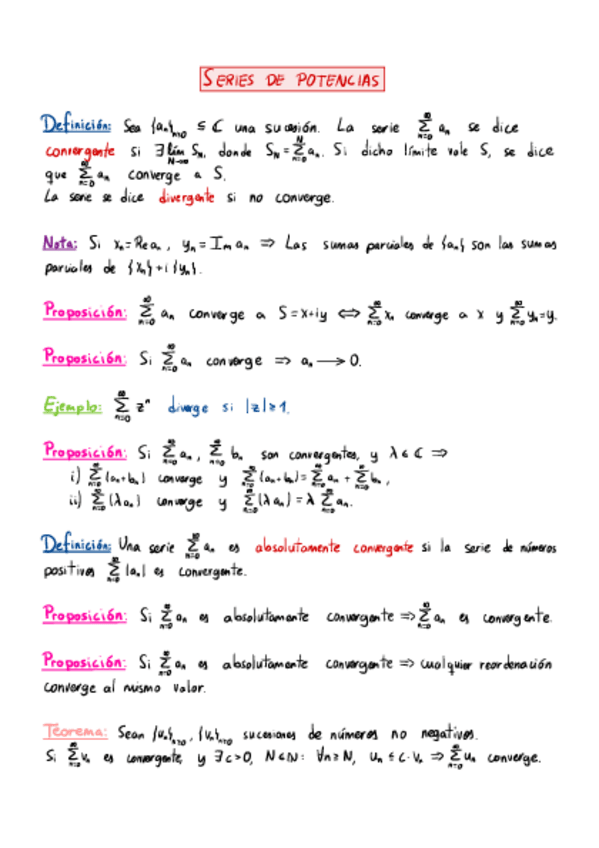 SERIES DE POTENCIAS
Definición: Sea {aₙ}ₙ≥₀ ⊆ ℂ una sucesión. La serie ∑_{n=0}^{∞} aₙ se dice
convergente si ∃ lím_{N→∞} S_N, donde S_N = ∑_{n=0}^{N} aₙ. Si dicho límite vale S, se dice
que ∑_{n=0}^{∞} aₙ converge a S.
La serie se dice divergente si no converge.
Nota: Si xₙ = Re aₙ, yₙ = Im aₙ ⇒ Las sumas parciales de {aₙ} son las sumas
parciales de {xₙ} + i {yₙ}.
Proposición: ∑_{n=0}^{∞} aₙ converge a S = x+iy ⟺ ∑_{n=0}^{∞} xₙ converge a x y ∑_{n=0}^{∞} yₙ = y.
Proposición: Si ∑_{n=0}^{∞} aₙ converge ⇒ aₙ ⟶ 0.
Ejemplo: ∑_{n=0}^{∞} zⁿ diverge si |z| ≥ 1.
Proposición: Si ∑_{n=0}^{∞} aₙ, ∑_{n=0}^{∞} bₙ son convergentes, y λ ∈ ℂ ⇒
i) ∑_{n=0}^{∞} (aₙ+bₙ) converge y ∑_{n=0}^{∞} (aₙ+bₙ) = ∑_{n=0}^{∞} aₙ + ∑_{n=0}^{∞} bₙ,
ii) ∑_{n=0}^{∞} (λaₙ) converge y ∑_{n=0}^{∞} (λaₙ) = λ ∑_{n=0}^{∞} aₙ.
Definición: Una serie ∑_{n=0}^{∞} aₙ es absolutamente convergente si la serie de números
positivos ∑_{n=0}^{∞} |aₙ| es convergente.
Proposición: Si ∑_{n=0}^{∞} aₙ es absolutamente convergente ⇒ ∑_{n=0}^{∞} aₙ es convergente.
Proposición: Si ∑_{n=0}^{∞} aₙ es absolutamente convergente ⇒ cualquier reordenación
converge al mismo valor.
Teorema: Sean {uₙ}ₙ≥₀, {vₙ}ₙ≥₀ sucesiones de números no negativos.
Si ∑_{n=0}^{∞} vₙ es convergente, y ∃ c>0, N∈ℕ: ∀n≥N, uₙ ≤ c·vₙ ⇒ ∑_{n=0}^{∞} uₙ converge.